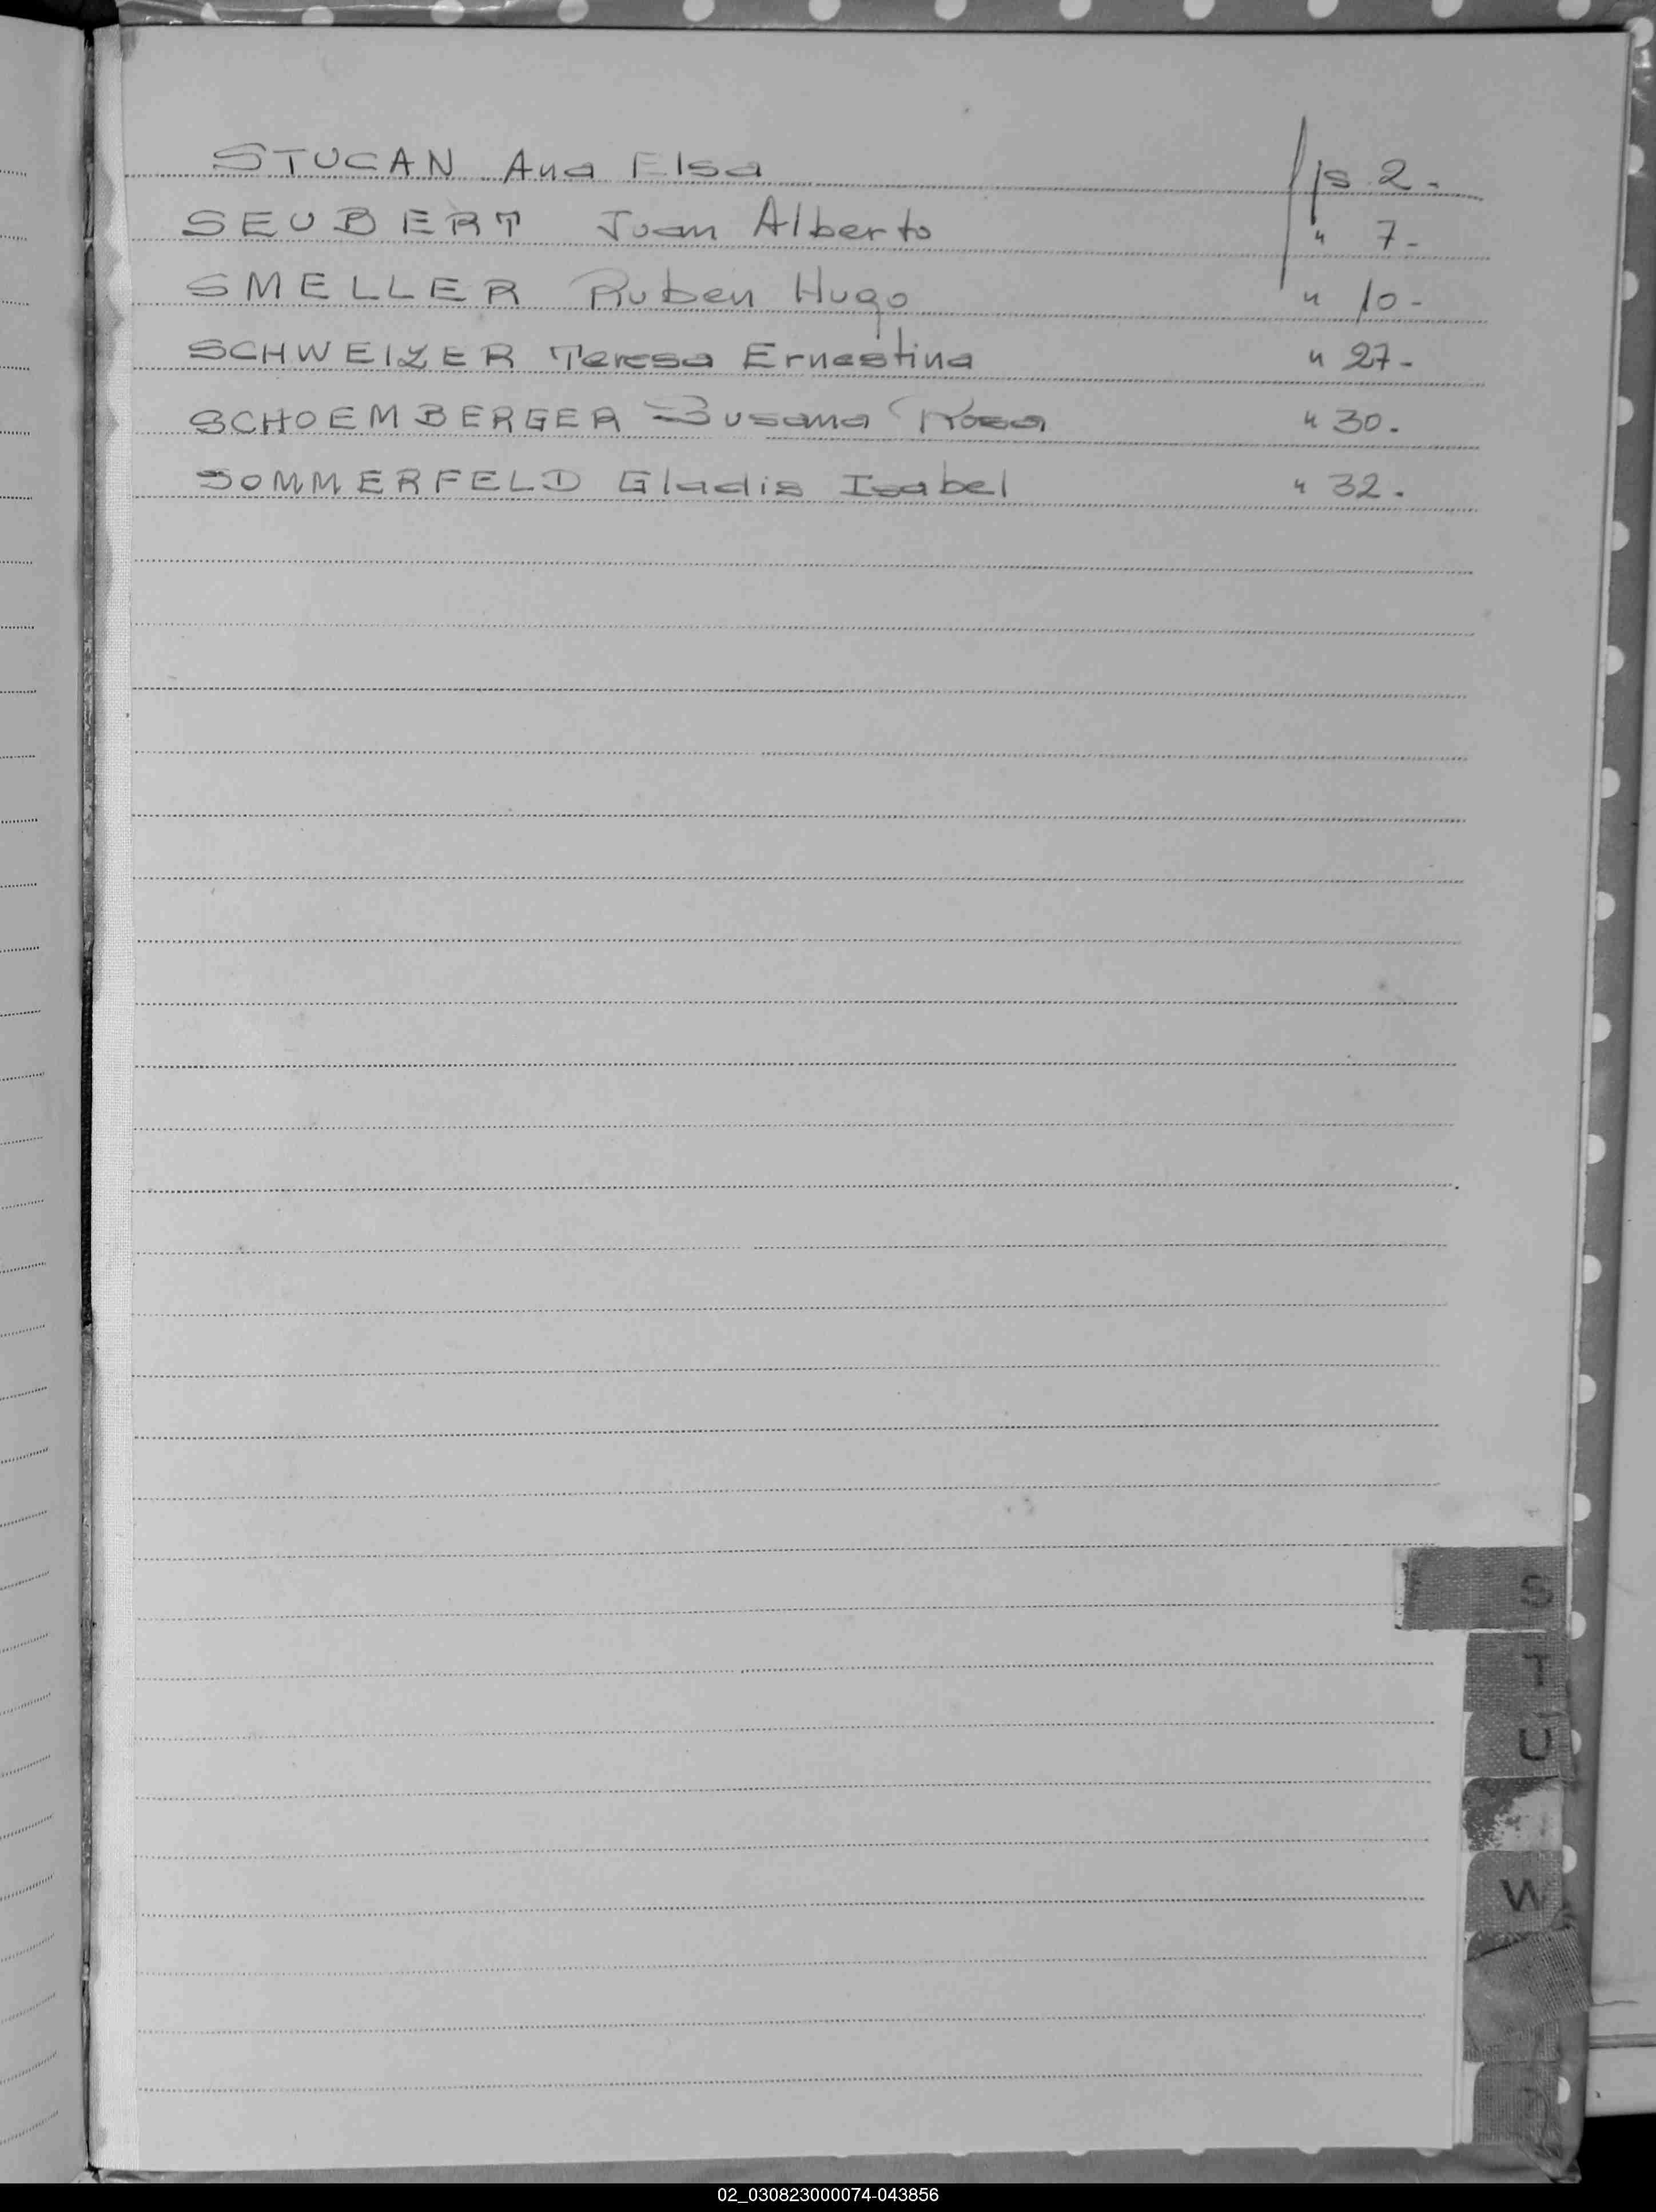 STUCAN Ana Elsa fjs 2.
SEUBERT Juan Alberto " 7-
SMELLER Ruben Hugo " 10-
SCHWEIZER Teresa Ernestina " 27-
SCHOEMBERGER Susana Rosa " 30.
SOMMERFELD Gladis Isabel " 32.
S
T
U
W
02_030823000074-043856